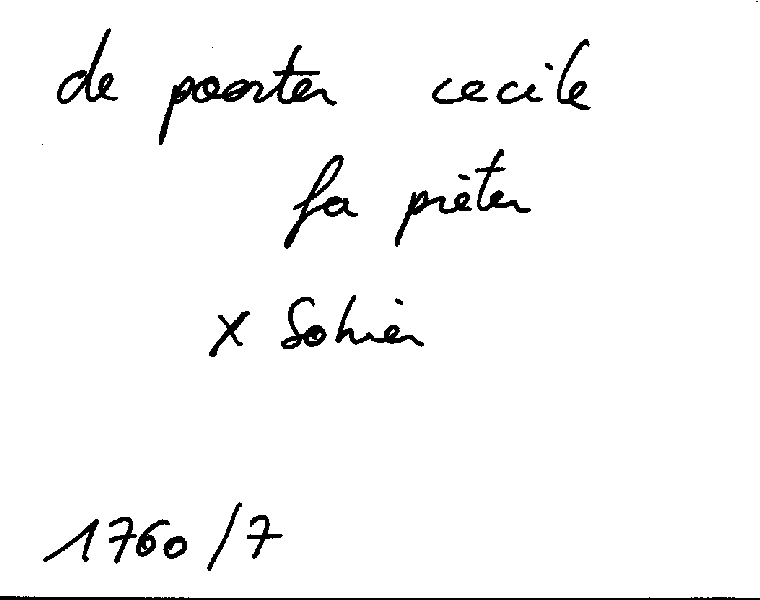 de poorter cecile
fa pieter
x Sohier
1760/7